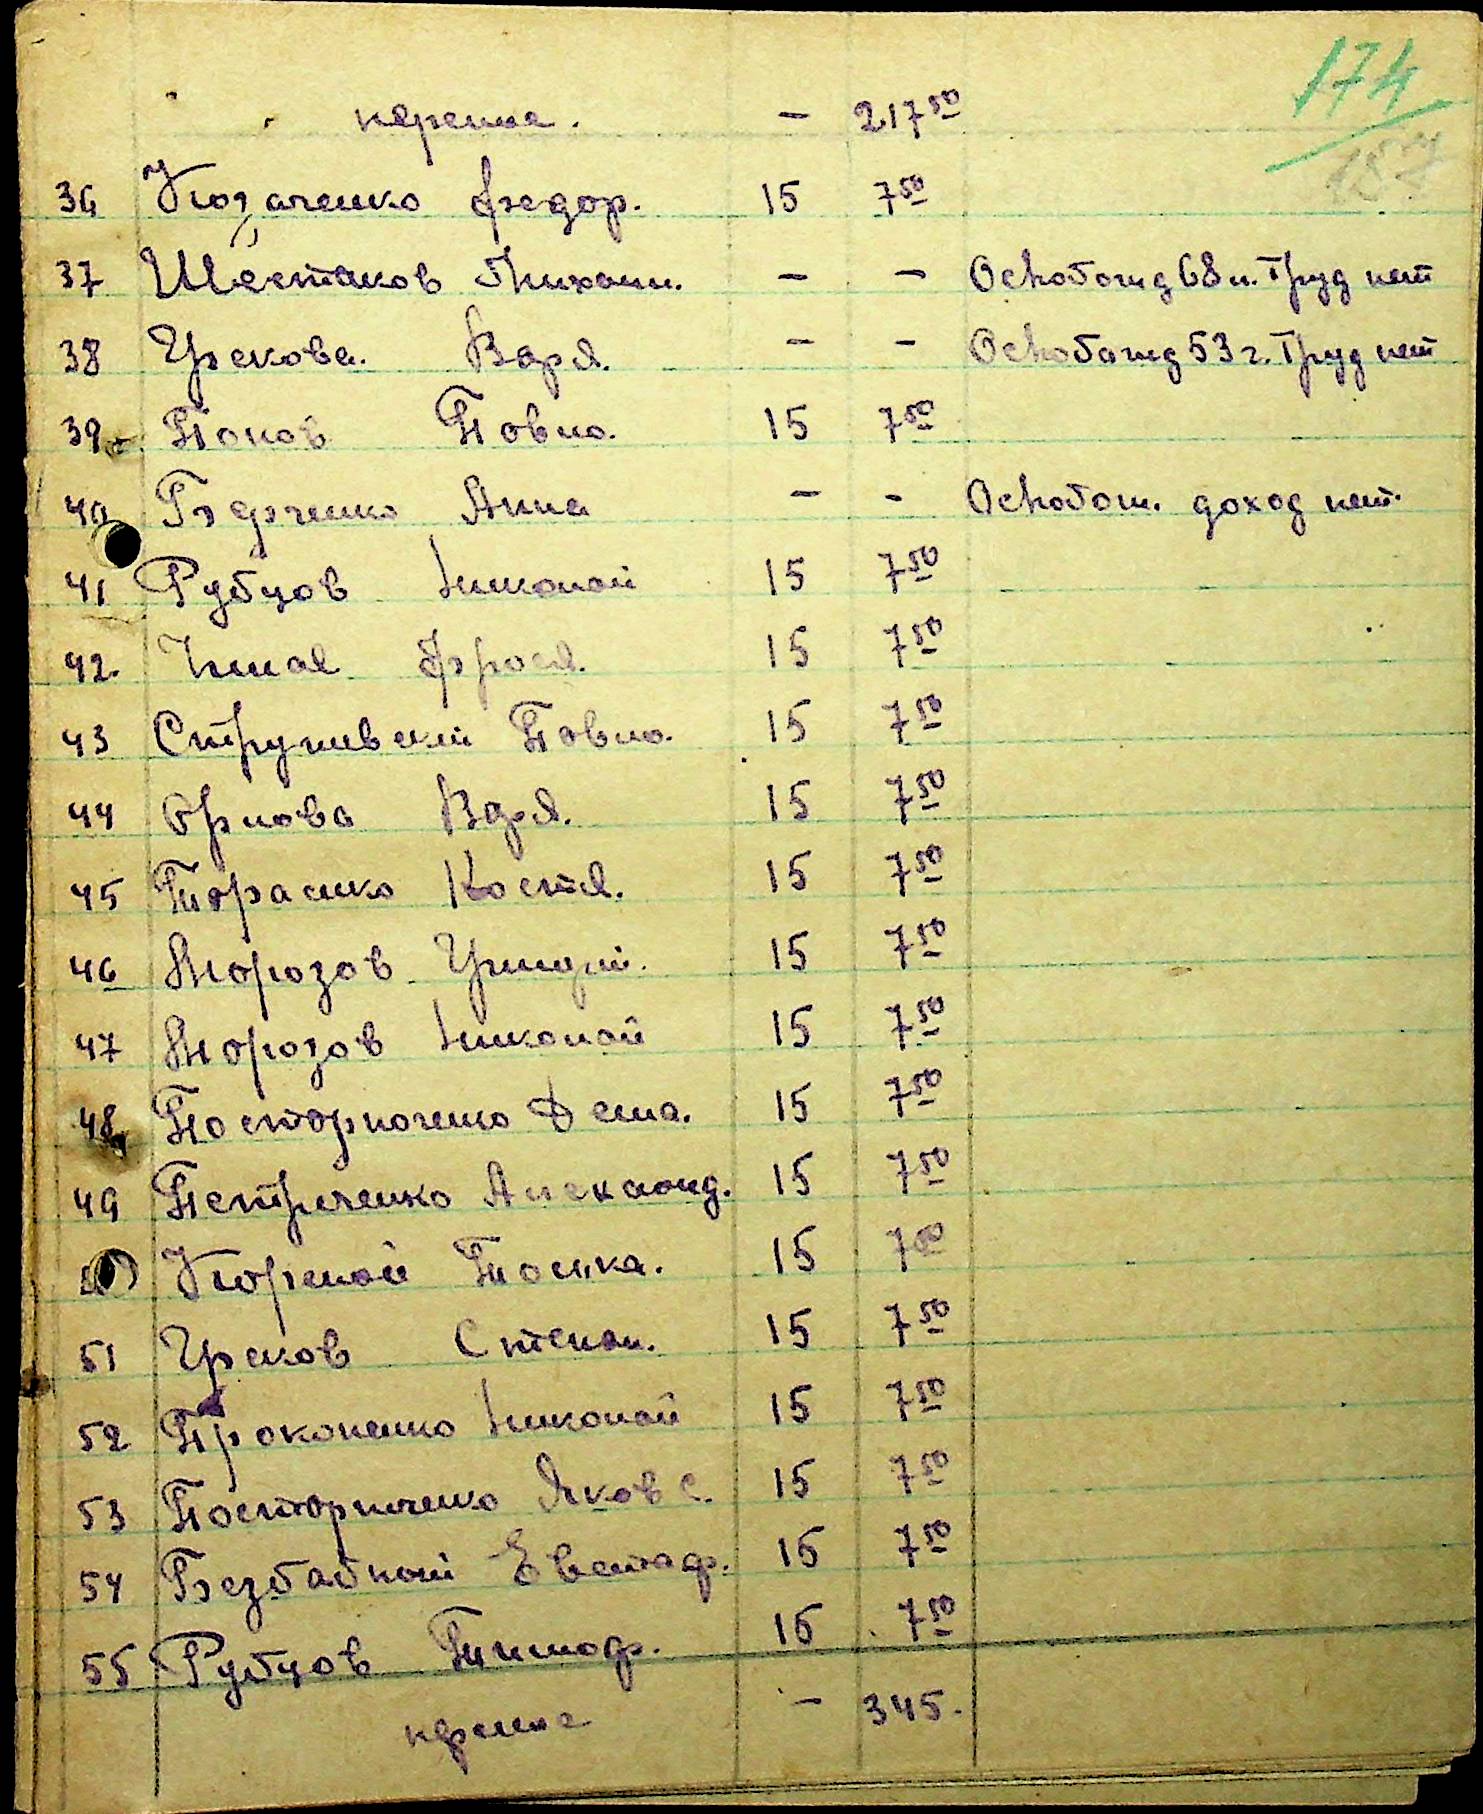 174
187
перенос. - 217 50
36 Козаченко Федор. 15 7 50
37 Шестаков Михаил. - - Освобожд 68 л. Труд нет
38 Грекова. Варя. - - Освобожд 53 г. Труд нет
39 Попов Павло. 15 7 50
40 Анна - - Освобож. доход нет.
41 Рубцов Николай 15 7 50
42. Фрося. 15 7 50
43 Павло. 15 7 50
44 Орлова Варя. 15 7 50
45 Тарасенко Костя. 15 7 50
46 Морозов 15 7 50
47 Морозов Николай 15 7 50
48 Дема. 15 7 50
49 Петриченко Александ. 15 7 50
15 7 50
51 Греков Степан. 15 7 50
52 Прокопенко Николай 15 7 50
53 Яков С. 15 7 50
54 Безбабный Евстаф. 15 7 50
55 Рубцов Тимоф. 15 7 50
перенос - 345.